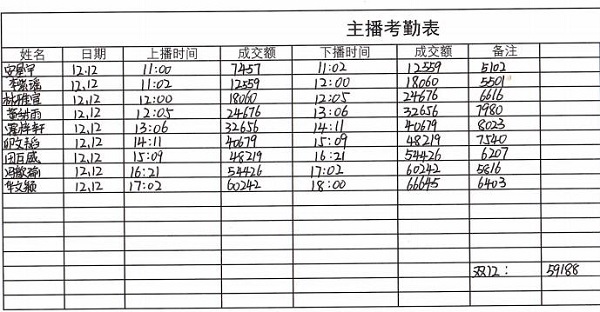 主播考勤表
姓名 日期 上播时间 成交额 下播时间 成交额 备注
12.12 11:00 7457 11:02 12559 5102
李紫瑶 12.12 11:02 12559 12:00 18060 5501
林雅宣 12.12 12:00 18060 12:05 24676 6616
董纳雨 12.12 12:05 24676 13:06 32656 7980
12.12 13:06 32656 14:11 40679 8023
12.12 14:11 40679 15:09 48219 7540
12.12 15:09 48219 16:21 54426 6207
冯敏瑜 12.12 16:21 54426 17:02 60242 5816
华文颖 12.12 17:02 60242 18:00 66645 6403
双12: 59188